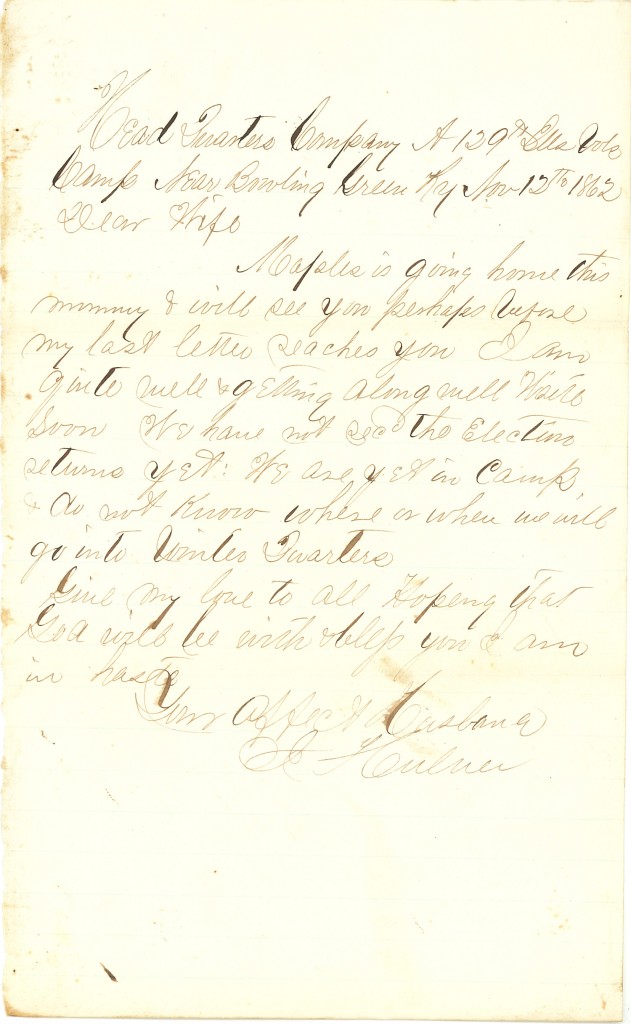 Head Quarters Company A 129th Ills Vols
Camp Near Bowling Green Ky Nov 12th 1862
Dear Wife
Maples is going home this
morning & will see you perhaps before
my last letter reaches you I am
quite well & getting along well Write
Soon We have not recd the Election
returns yet: We are yet in Camp
& do not know where or when we will
go into Winter Quarters
Give my love to all Hopeing that
God will be with & bless you I am
in haste
Your Affect Husband